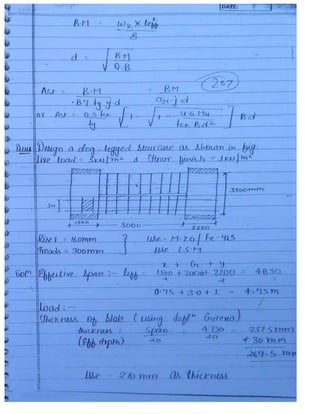 B.M = w₂ × leff²
8
d = √ B.M
Q.B
Ast = B.M = BM
.87 fy j d σst·j·d
207
or Ast = 0.5 fck [ 1 - √ 1 - 4.6 Mu ] Bd
fy fck B d²
Design a dog-legged staircase as shown in fig.
live load = kN/m² & floor finish = 1 kN/m²
3500mm
2m
3000
2200
Rise = 150mm } Use - M-20 / Fe-415
Treads = 300mm Use L.S.M
x + G + y
Solⁿ Effective Span :- leff = 1500 + 3000 + 2200 = 4850
2 2
0.75 + 3.0 + 1 = 4.75m
Load :-
Thickness of Slab (using deflⁿ Criteria)
thickness = Span = 4750 = 237.5mm
(Eff depth) 20 20 + 30 mm
267.5 mm
Use - 270 mm as thickness